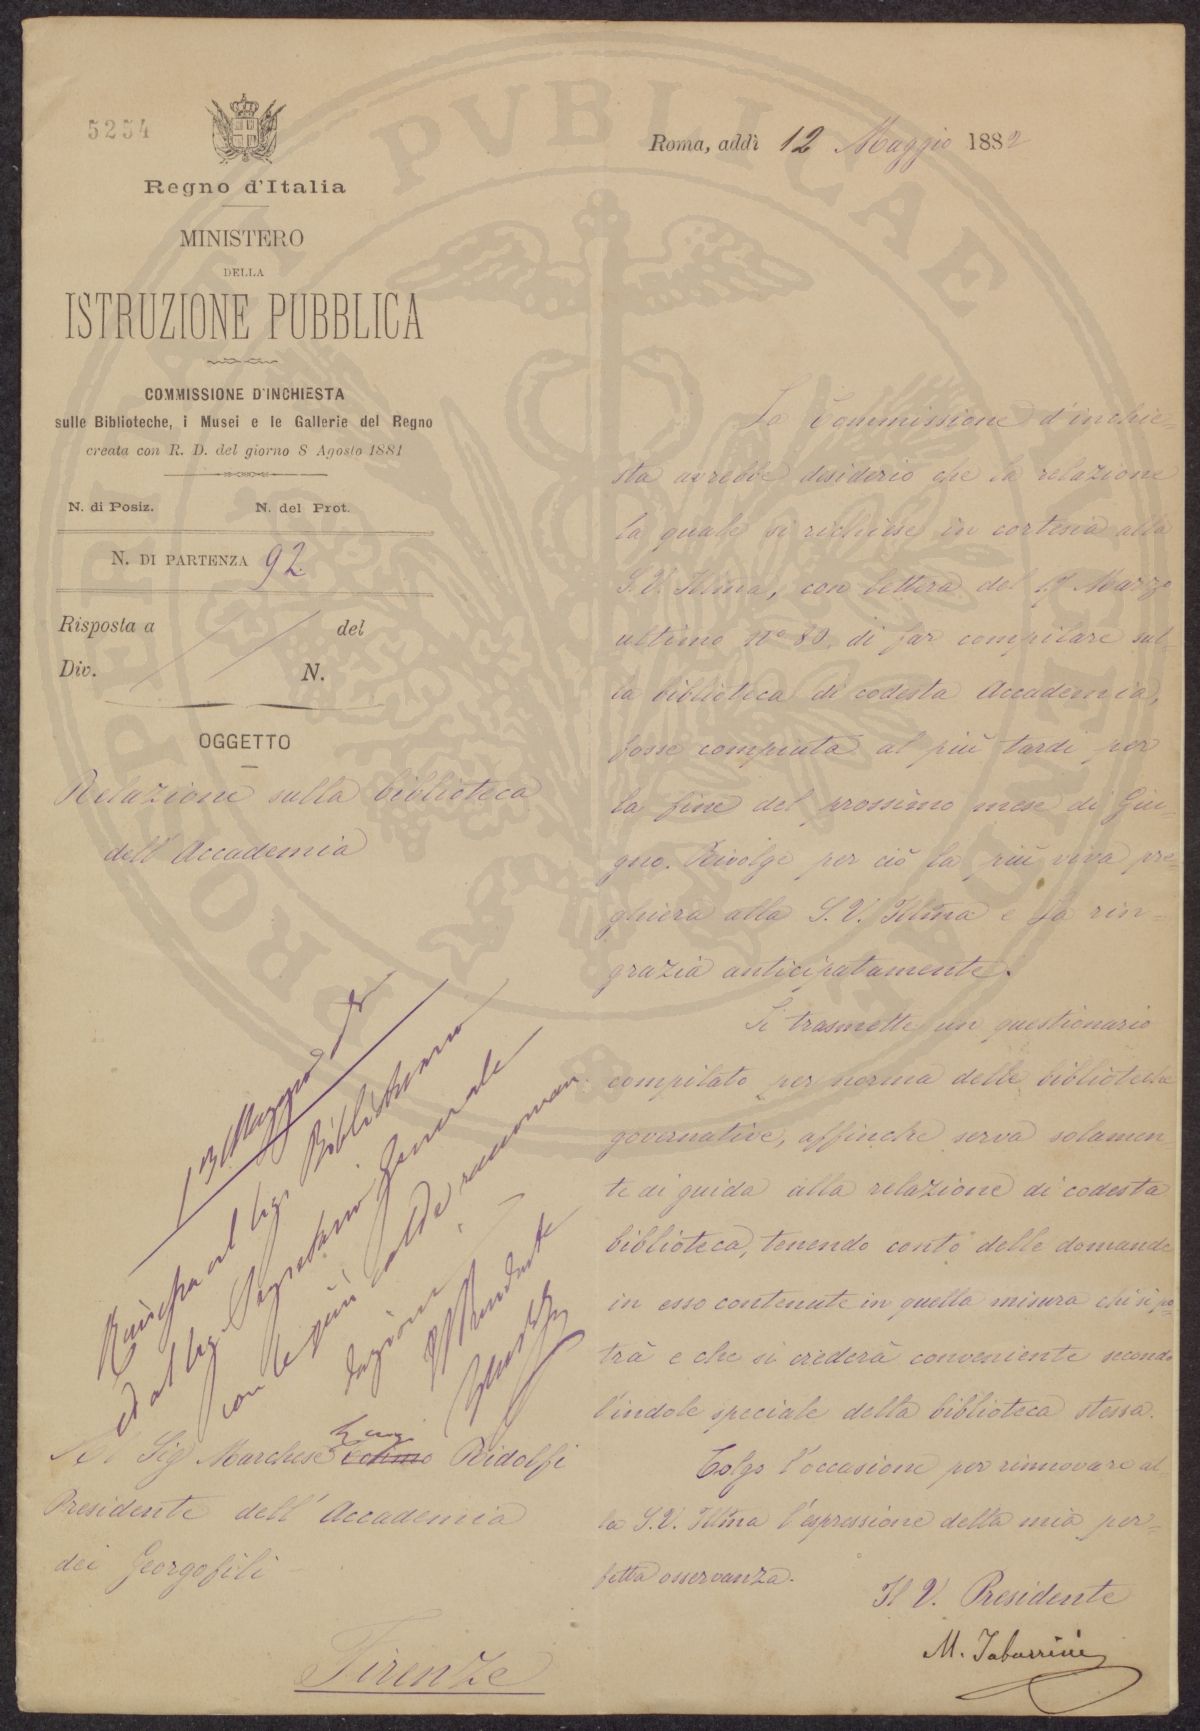 5254
Regno d'Italia
MINISTERO
DELLA
ISTRUZIONE PUBBLICA
COMMISSIONE D'INCHIESTA
sulle Biblioteche, i Musei e le Gallerie del Regno
creata con R. D. del giorno 8 Agosto 1881
N. di Posiz. N. del Prot.
N. DI PARTENZA 92.
Risposta a del
Div. N.
OGGETTO
Relazione sulla biblioteca
dell'Accademia
Roma, addì 12 Maggio 1882
La Commissione d'inchie=
sta avrebbe desiderio che la relazione
la quale si richiese in cortesia alla
S.V. Illma, con lettera del Marzo
ultimo no 80, di far compilare sul=
la biblioteca di codesta Accademia,
fosse compiuta al più tardi per
la fine del prossimo mese di Giu=
gno. Rivolge per ciò la più viva pre=
ghiera alla S.V. Illma e La rin=
grazia anticipatamente.
Si trasmette un questionario
compilato per norma delle biblioteche
governative, affinchè serva solamen=
te di guida alla relazione di codesta
biblioteca, tenendo conto delle domande
in esso contenute in quella misura che si po=
trà e che si crederà conveniente secondo
l'indole speciale della biblioteca stessa.
Colgo l'occasione per rinnovare al=
la S.V. Illma l'espressione della mia per=
fetta osservanza.
Il V. Presidente
M. Tabarrini
13 Maggio
al Sig. Bibliotecario
ed al Sig. Segretario Generale
con le più calde raccoman
dazioni
Il Presidente
Al Sig Marchese Ridolfi
Presidente dell'Accademia
dei Georgofili
Firenze
PROPRIETATI PVBLICAE